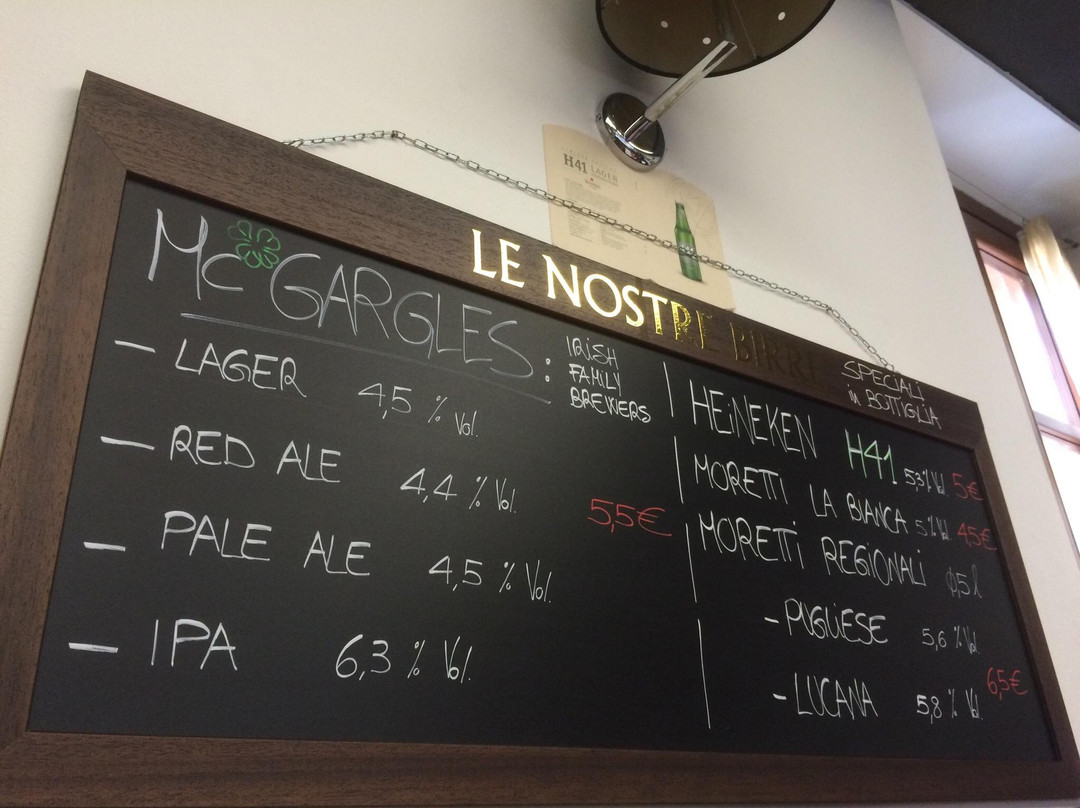 H41 LAGER
LE NOSTRE BIRRE
Mc GARGLES : IRISH
FAMILY
BREWERS
- LAGER 4,5 % Vol.
- RED ALE 4,4 % Vol.
5,5€
- PALE ALE 4,5 % Vol.
- IPA 6,3 % Vol.
SPECIALI
in BOTTIGLIA
HEiNEKEN H41 5,3% Vol. 5€
MORETTI LA BIANCA 5% Vol. 4,5€
MORETTi REGIONALi 0,5 l
- PUGLIESE 5,6 % Vol.
6,5€
- LUCANA 5,8 % Vol.